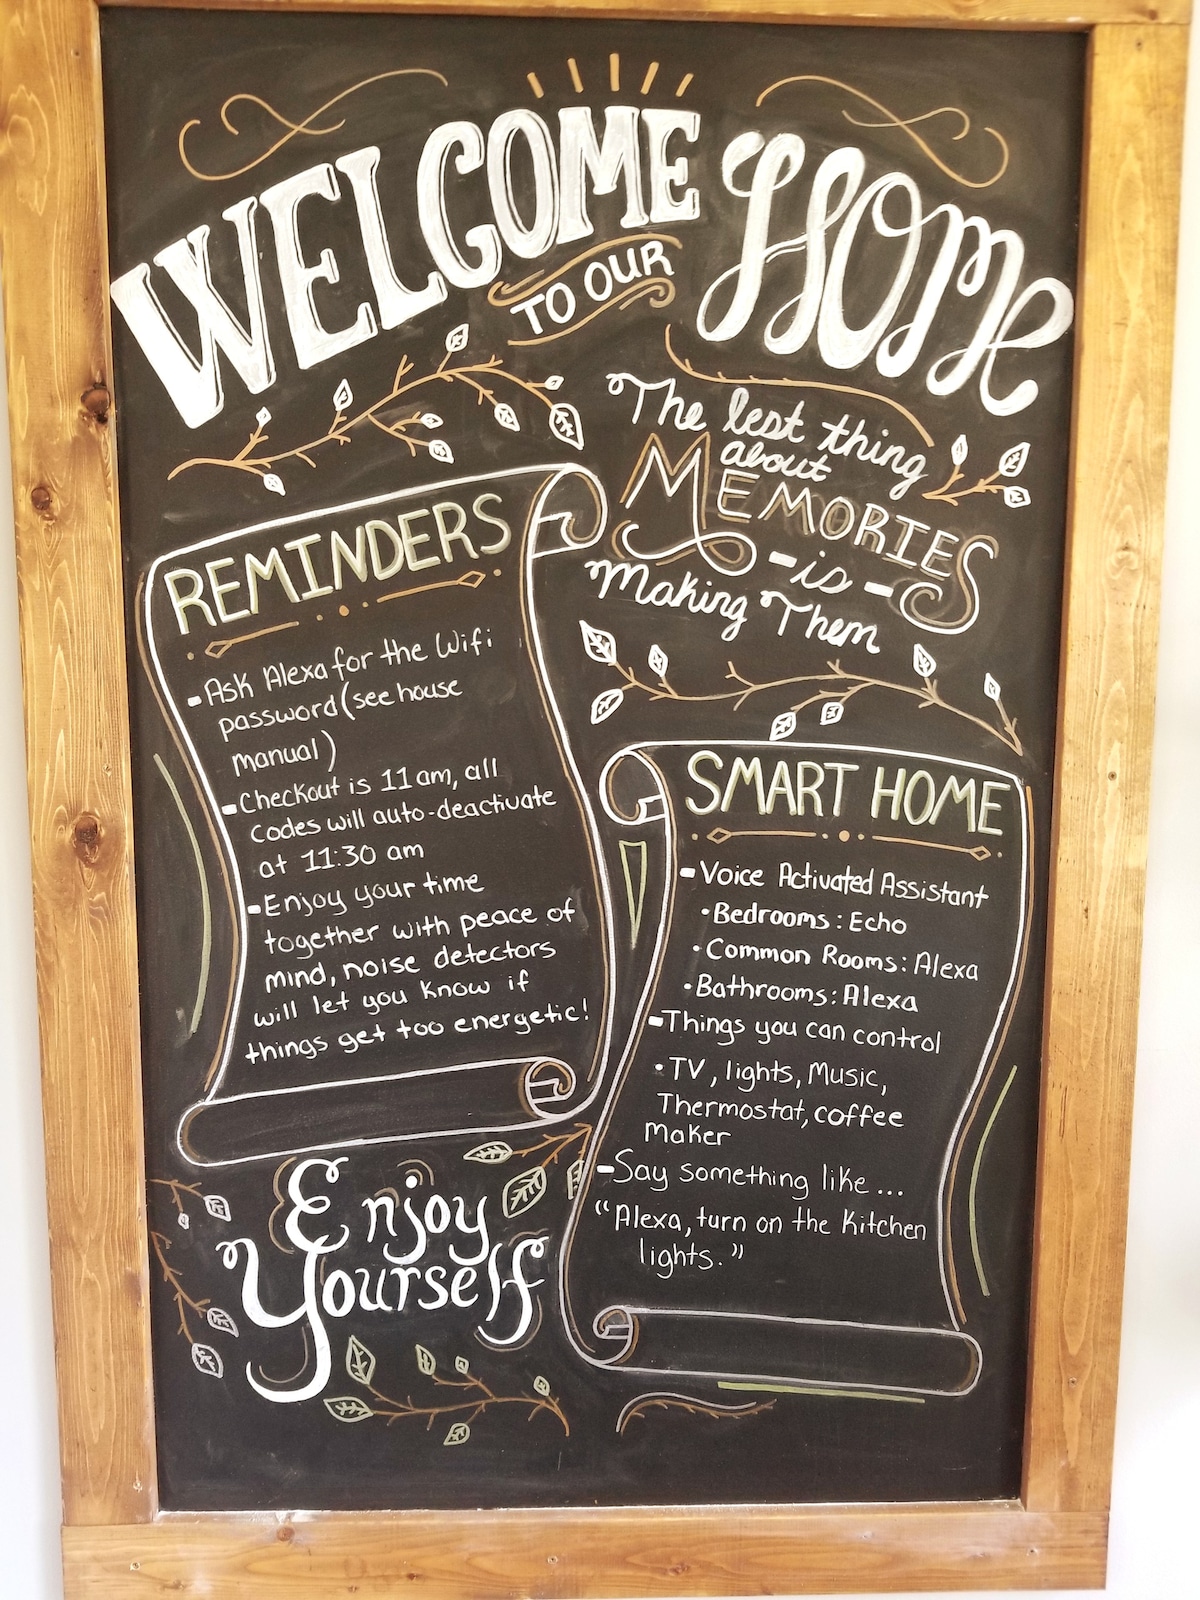 WELCOME
TO OUR
HOME
The best thing
about
MEMORIES
-is-
Making Them
REMINDERS
-Ask Alexa for the Wifi
password (see house
manual)
-Checkout is 11 am, all
codes will auto-deactivate
at 11:30 am
-Enjoy your time
together with peace of
mind, noise detectors
will let you know if
things get too energetic!
SMART HOME
-Voice Activated Assistant
•Bedrooms: Echo
•Common Rooms: Alexa
•Bathrooms: Alexa
-Things you can control
•TV, lights, Music,
Thermostat, coffee
Maker
-Say something like...
"Alexa, turn on the Kitchen
lights."
Enjoy
Yourself